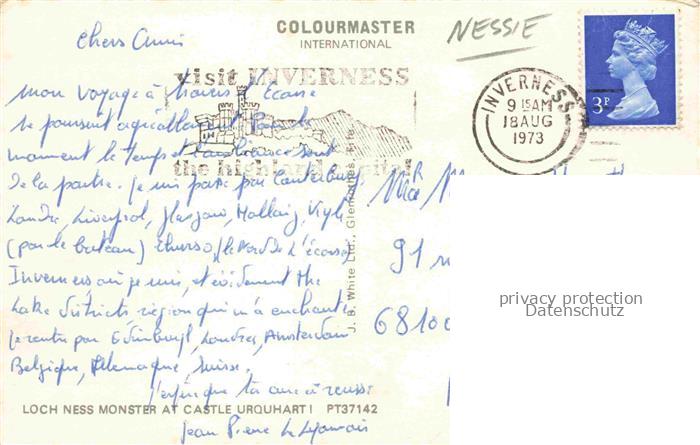 COLOURMASTER
INTERNATIONAL
NESSIE
chers amis
visit INVERNESS
the highland capital
INVERNESS
9 15AM
18 AUG
1973
3P
mon voyage à travers l'Ecosse
se poursuit agréablement
moment le temps et l'ambiance sont
de la partie. Je suis passé par Canterbury
Londres, Liverpool, Glasgow, Mallaig, Kyle
(par le bateau) Thurso (le Nord de l'écosse)
Inverness où je suis, et évidement the
Lake districts, région qui m'a enchanté
je rentre par Edimburgh, Londres, Amsterdam
Belgique, Allemagne, Suisse.
J'espère que ta cure a réussi
Jean Pierre
MR
91
6810
J. B. White Ltd., Glenrothes, Fife.
LOCH NESS MONSTER AT CASTLE URQUHART! PT37142
privacy protection
Datenschutz